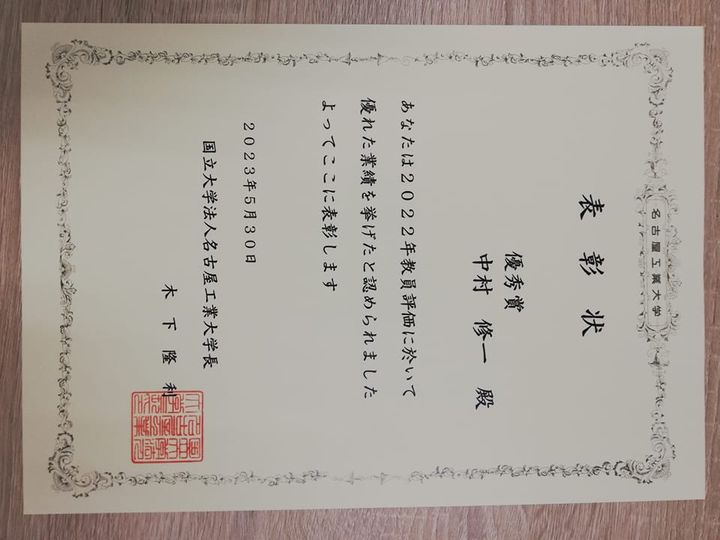 名古屋工業大学
表彰状
優秀賞
中村 修一 殿
あなたは2022年教員評価に於いて
優れた業績を挙げたと認められました
よってここに表彰します
2023年5月30日
国立大学法人名古屋工業大学長
木下隆利